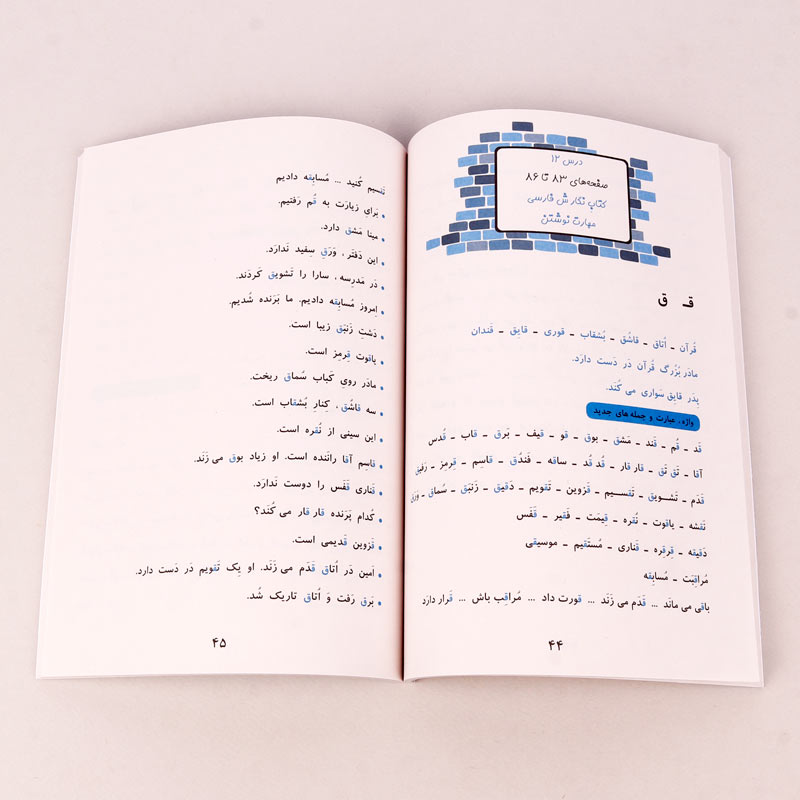 درس ۱۲
صفحه‌های ۸۳ تا ۸۶
کتاب نگارش فارسی
مهارت نوشتن
قـ ق
قُرآن ـ اُتاق ـ قاشُق ـ بُشقاب ـ قوری ـ قایِق ـ قَندان
مادَر بُزُرگ قُرآن دَر دَست دارَد.
پِدَر قایِق سَواری می کُنَد.
واژه، عبارت و جمله های جدید
قَد ـ قُم ـ قَند ـ مَشق ـ بوق ـ قو ـ قیف ـ بَرق ـ قاب ـ قُدس
آقا ـ تَق تَق ـ قار قار ـ قُد قُد ـ ساقه ـ فَندُق ـ قاسِم ـ قِرمِز ـ رَفیق
قَدَم ـ تَشویق ـ تَقسیم ـ قَزوین ـ تَقویم ـ دَقیق ـ زَنبَق ـ سُماق ـ وَرَق
نَقشه ـ یاقوت ـ نُقره ـ قِیمَت ـ فَقیر ـ قَفَس
دَقیقه ـ قِرقِره ـ قَناری ـ مُستَقیم ـ موسیقی
مُراقِبَت ـ مُسابِقه
باقی می مانَد ... قَدَم می زَنَد ... قورت داد ... مُراقِب باش ... قَرار دارَد
۴۴
تَقسیم کُنید ... مُسابِقه دادیم
بَرایِ زیارَت به قُم رَفتیم.
مینا مَشق دارَد.
این دَفتَر، وَرَقِ سِفید نَدارَد.
دَر مَدرِسه، سارا را تَشویق کَردَند.
اِمروز مُسابِقه دادیم. ما بَرَنده شُدیم.
دَشتِ زَنبَق زیبا است.
یاقوت قِرمِز است.
مادَر رویِ کَباب سُماق ریخت.
سه قاشُق، کِنارِ بُشقاب است.
این سینی از نُقره است.
قاسِم آقا رانَنده است. او زیاد بوق می زَنَد.
قَناری قَفَس را دوست نَدارَد.
کُدام پَرَنده قار قار می کُنَد؟
قَزوین قَدیمی است.
اَمین دَر اُتاق قَدَم می زَنَد. او یِک تَقویم دَر دَست دارَد.
بَرق رَفت وَ اُتاق تاریک شُد.
۴۵